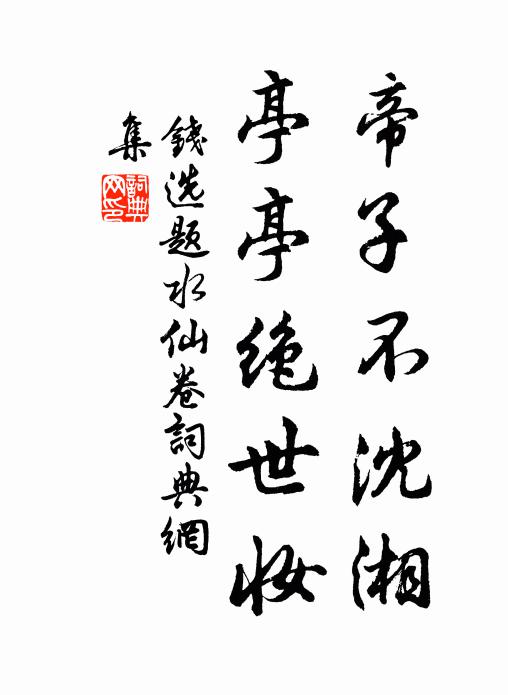 帝子不沈湘
亭亭绝世妆
錢选题水仙卷詞典網
集
詞典網印